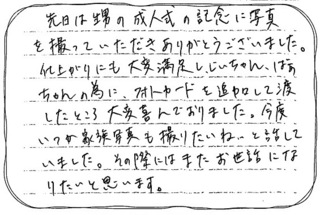 先日は甥の成人式の記念に写真
を撮っていただきありがとうございました。
仕上がりにも大変満足し、じいちゃん、ばあ
ちゃんの為に、フォトカードを追加して渡
したところ大変喜んでおりました。今度
いつか家族写真も撮りたいね…と話して
いました。その際にはまたお世話にな
りたいと思います。